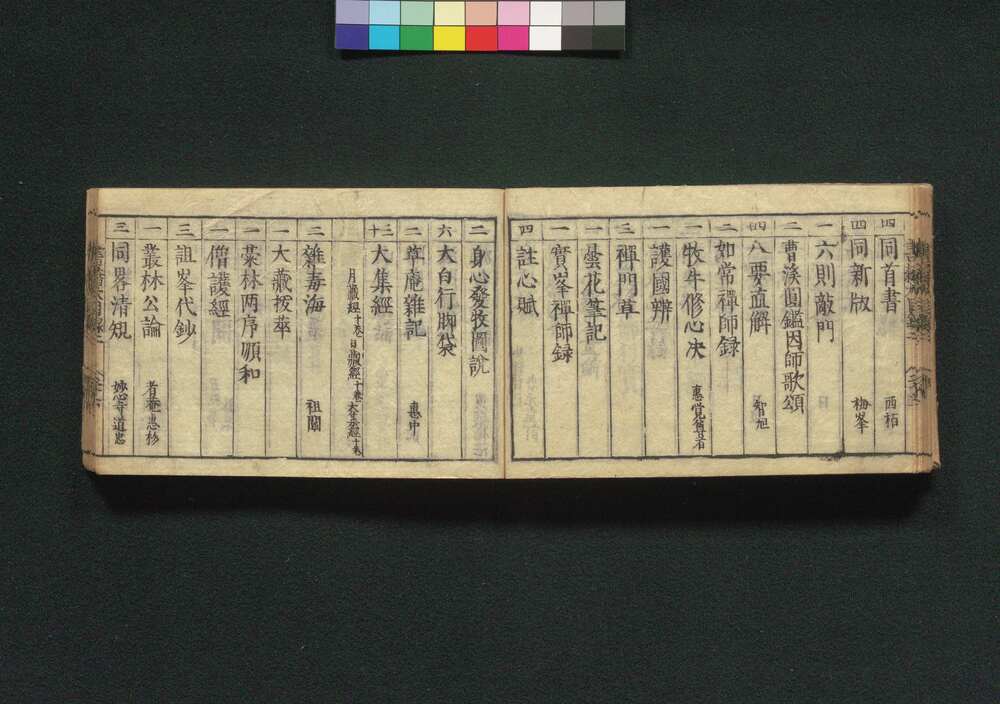 四 同首書 西柏
四 同新版 梅峯
一 六則敲門
二 曹溪圓鑑因師歌頌
四 八要直解 智旭
二 如常禪師録
一 牧牛修心决
一 護國辨
三 禪門草
一 曇花筆記
一 寳峯禪師録
四 註心賦
二 身心發牧圖説
六 大白行脚袋
二 草庵雜記
三十 大集經
月藏經十巻 日藏經十巻
二 雜毒海 祖闡
一 大藏抜萃
一 叢林两序順和
一 僧護經
三 詛峯代鈔
一 叢林公論 者菴惠彬
三 同畧清規 妙心寺道忠